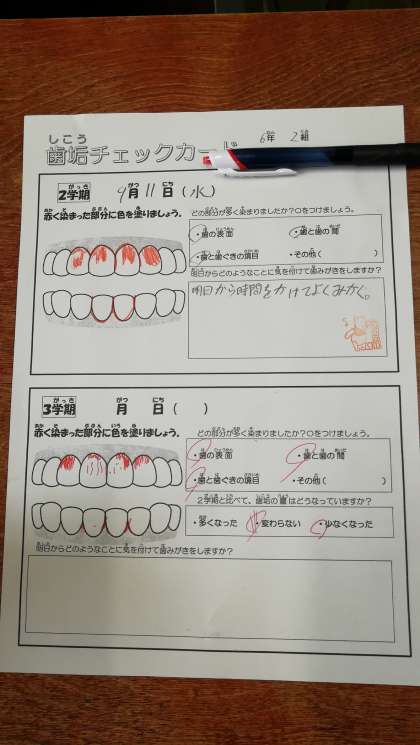 歯垢チェックカー
6年 2組
2学期 9月11日(水)
赤く染まった部分に色を塗りましょう。
どの部分が多く染まりましたか?○をつけましょう。
・歯の表面 ・歯と歯の間
・歯と歯ぐきの境目 ・その他( )
明日からどのようなことに気を付けて歯みがきをしますか?
明日から時間をかけてよくみがく。
3学期 月 日( )
赤く染まった部分に色を塗りましょう。
どの部分が多く染まりましたか?○をつけましょう。
・歯の表面 ・歯と歯の間
・歯と歯ぐきの境目 ・その他( )
2学期と比べて、歯垢の量はどうなっていますか?
・多くなった ・変わらない ・少なくなった
明日からどのようなことに気を付けて歯みがきをしますか?